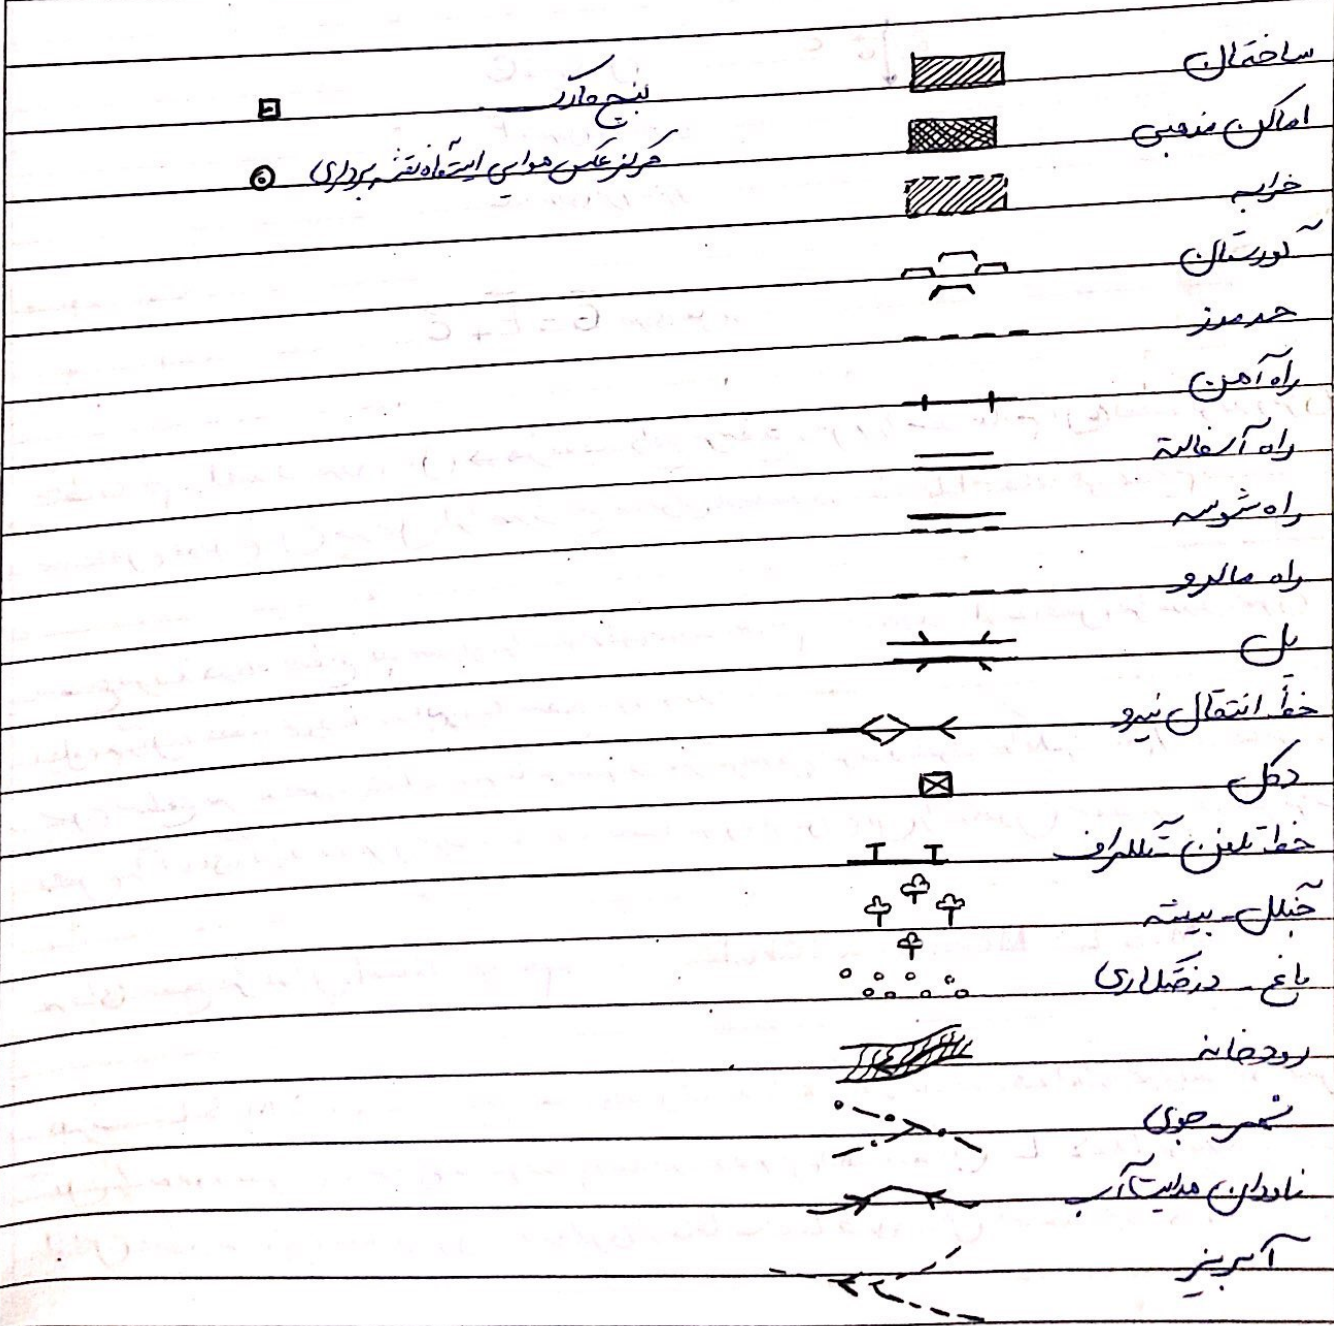 ساختمان
اماکن مذهبی
خرابه
گورستان
حد مرز
راه آهن
راه آسفالته
راه شوسه
راه مالرو
پل
خط انتقال نیرو
دکل
خط تلفن تلگراف
جنگل - بیشه
باغ - درختکاری
رودخانه
نهر - جوی
ناودان هدایت آب
آبریز
بنچ مارک
مرکز عکس هوایی ایستگاه نقشه برداری